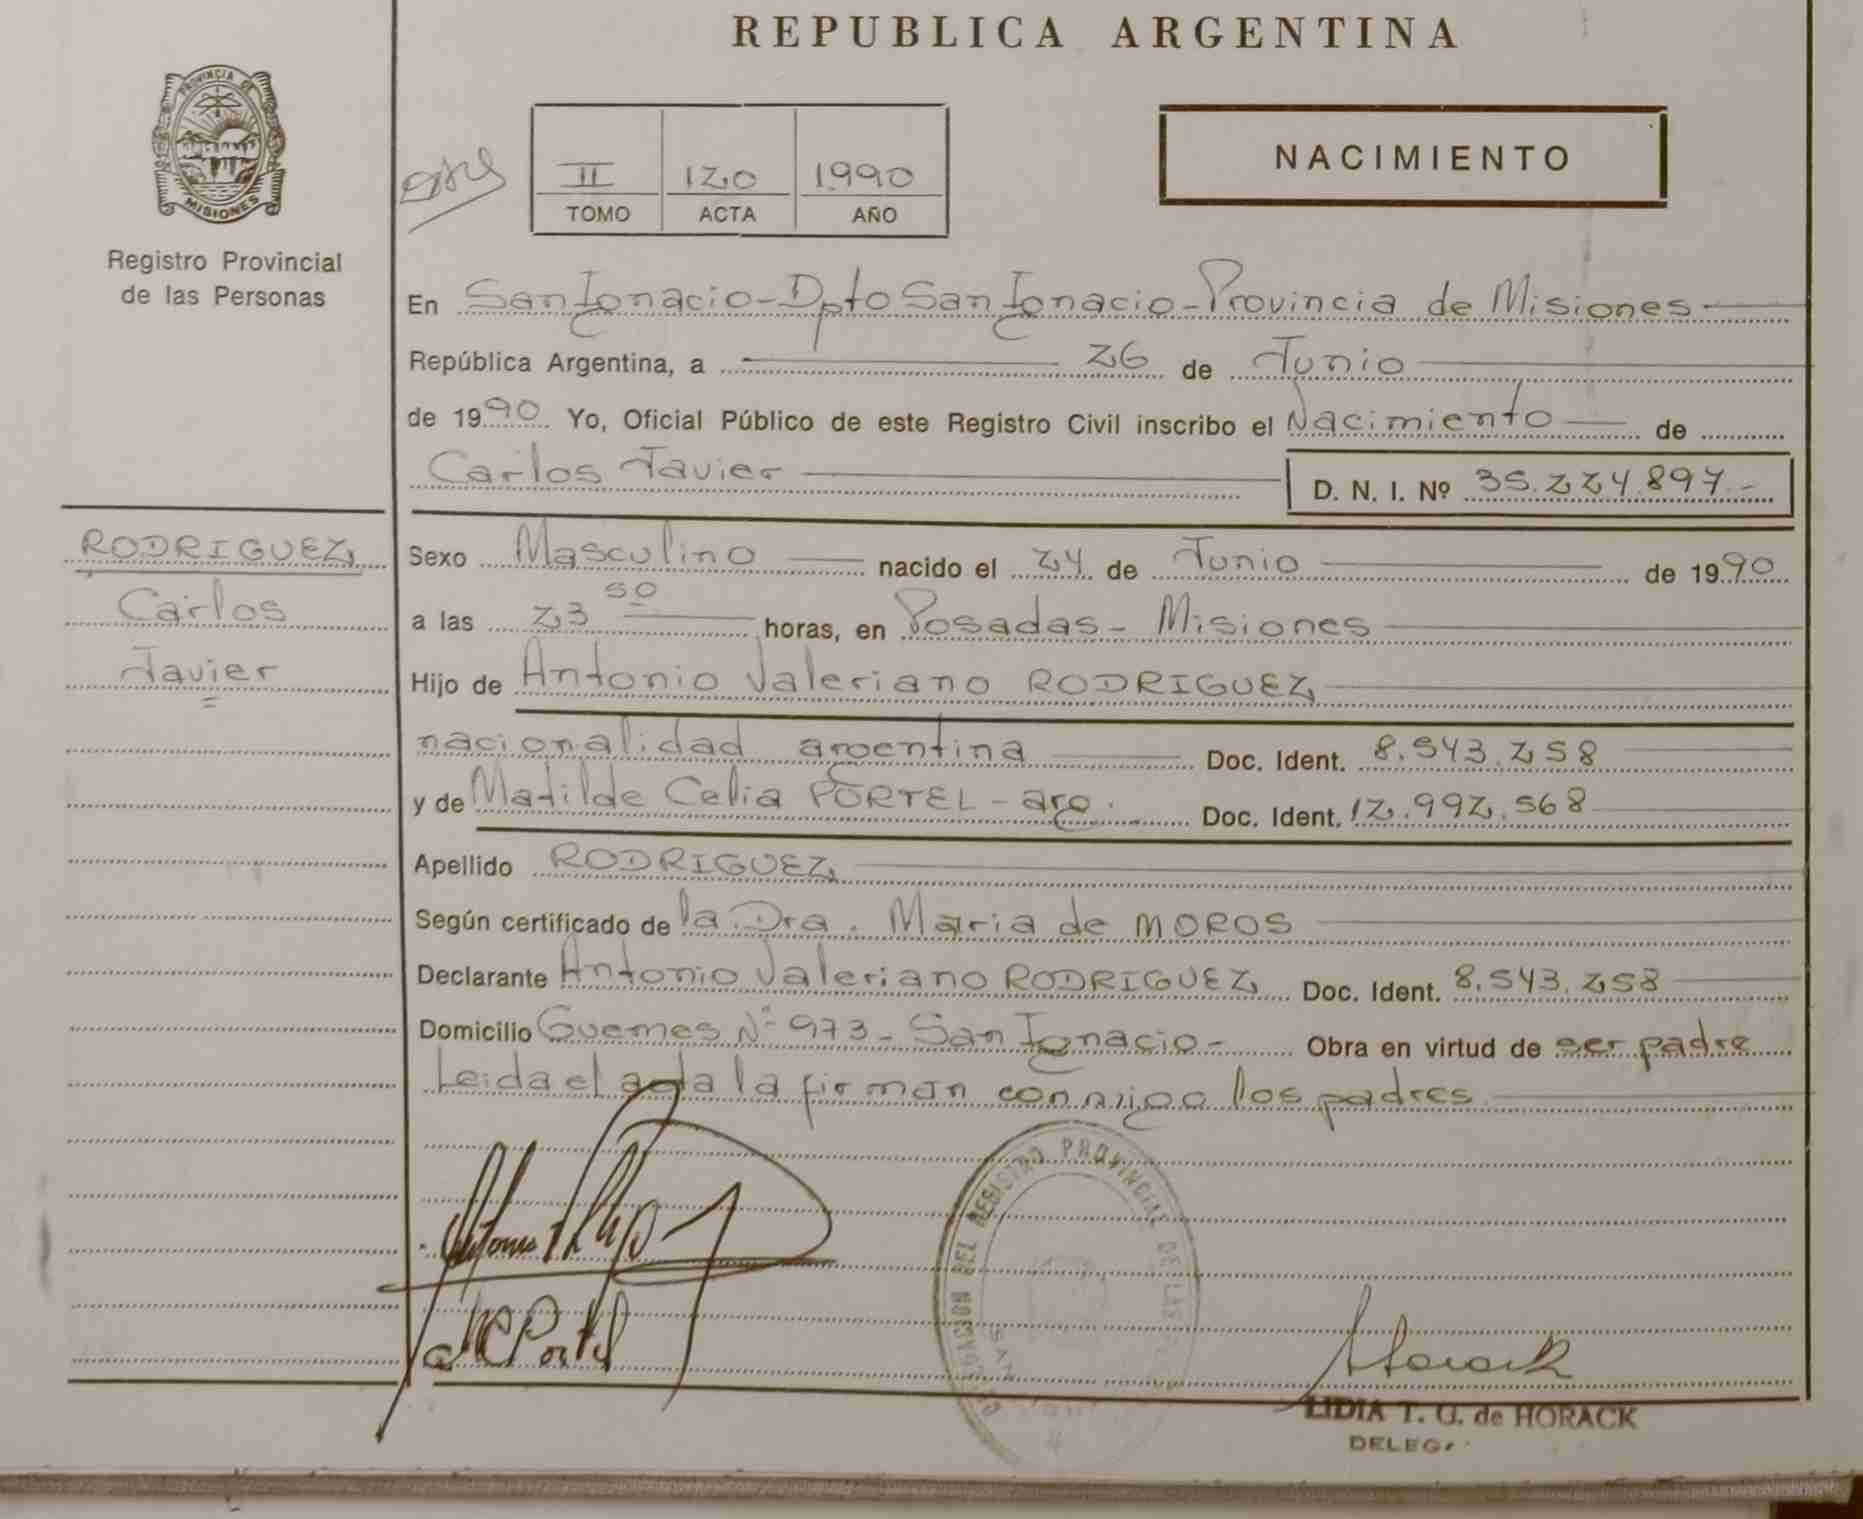 REPUBLICA ARGENTINA
PROVINCIA DE
MISIONES
Registro Provincial
de las Personas
II 120 1990
TOMO ACTA AÑO
NACIMIENTO
En San Ignacio - Dpto San Ignacio - Provincia de Misiones
República Argentina, a 26 de Junio
de 1990 Yo, Oficial Público de este Registro Civil inscribo el Nacimiento de
Carlos Javier D. N. I. Nº 35.224.897.-
RODRIGUEZ
Carlos
Javier
Sexo Masculino nacido el 24 de Junio de 1990
a las 23 50 horas, en Posadas - Misiones
Hijo de Antonio Valeriano RODRIGUEZ
nacionalidad argentina Doc. Ident. 8.543.258
y de Matilde Celia PORTEL - arg. Doc. Ident. 12.992.568
Apellido RODRIGUEZ
Según certificado de la Dra. Maria de MOROS
Declarante Antonio Valeriano RODRIGUEZ Doc. Ident. 8.543.258
Domicilio Guemes Nº 973 - San Ignacio - Obra en virtud de ser padre
Leida el acta la firman conmigo los padres
DELEGACION DEL REGISTRO PROVINCIAL DE LAS
SAN
Portel
Horack
LIDIA T. G. de HORACK